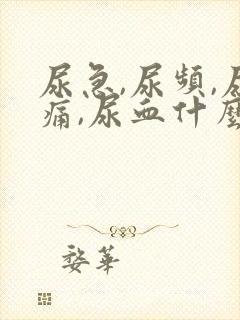 尿急,尿頻,尿
痛,尿血什麼
婺華